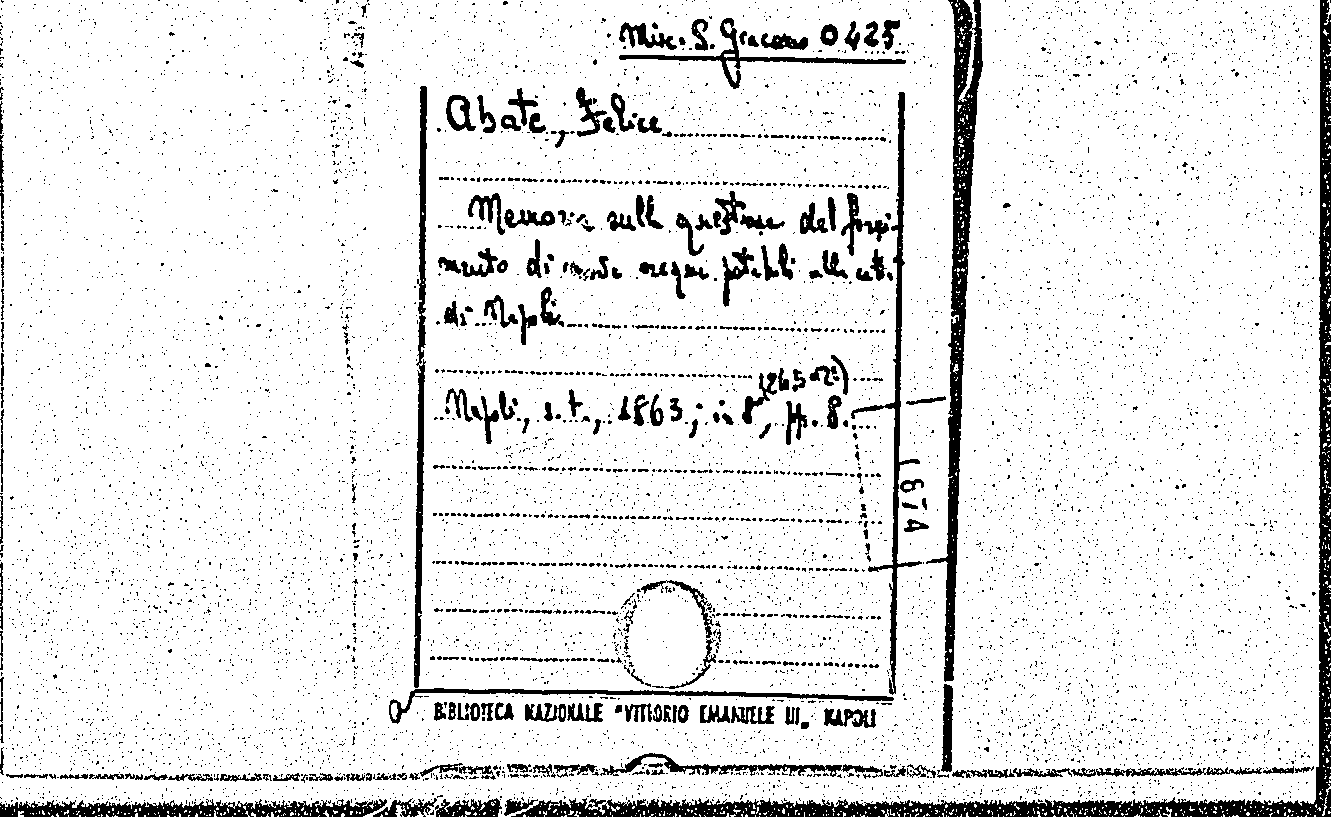 Misc. S. Giacomo 0425
Abate, Felice
Memoria sulla questione del forni-
mento di acque potabili alla città
di Napoli.
(26,5 cm)
Napoli, s.t., 1863; in 8°, pp. 8.
1674
BIBLIOTECA NAZIONALE "VITTORIO EMANUELE III" NAPOLI